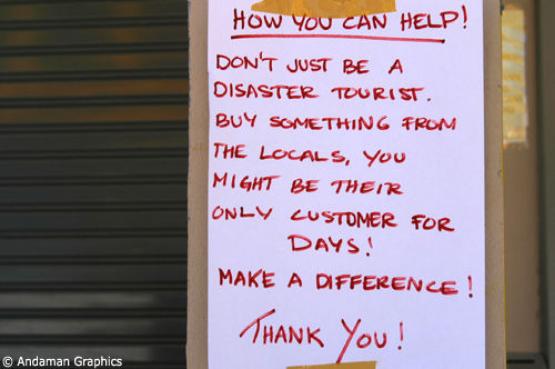 HOW YOU CAN HELP!
DON'T JUST BE A
DISASTER TOURIST.
BUY SOMETHING FROM
THE LOCALS, YOU
MIGHT BE THEIR
ONLY CUSTOMER FOR
DAYS!
MAKE A DIFFERENCE!
THANK YOU!
© Andaman Graphics